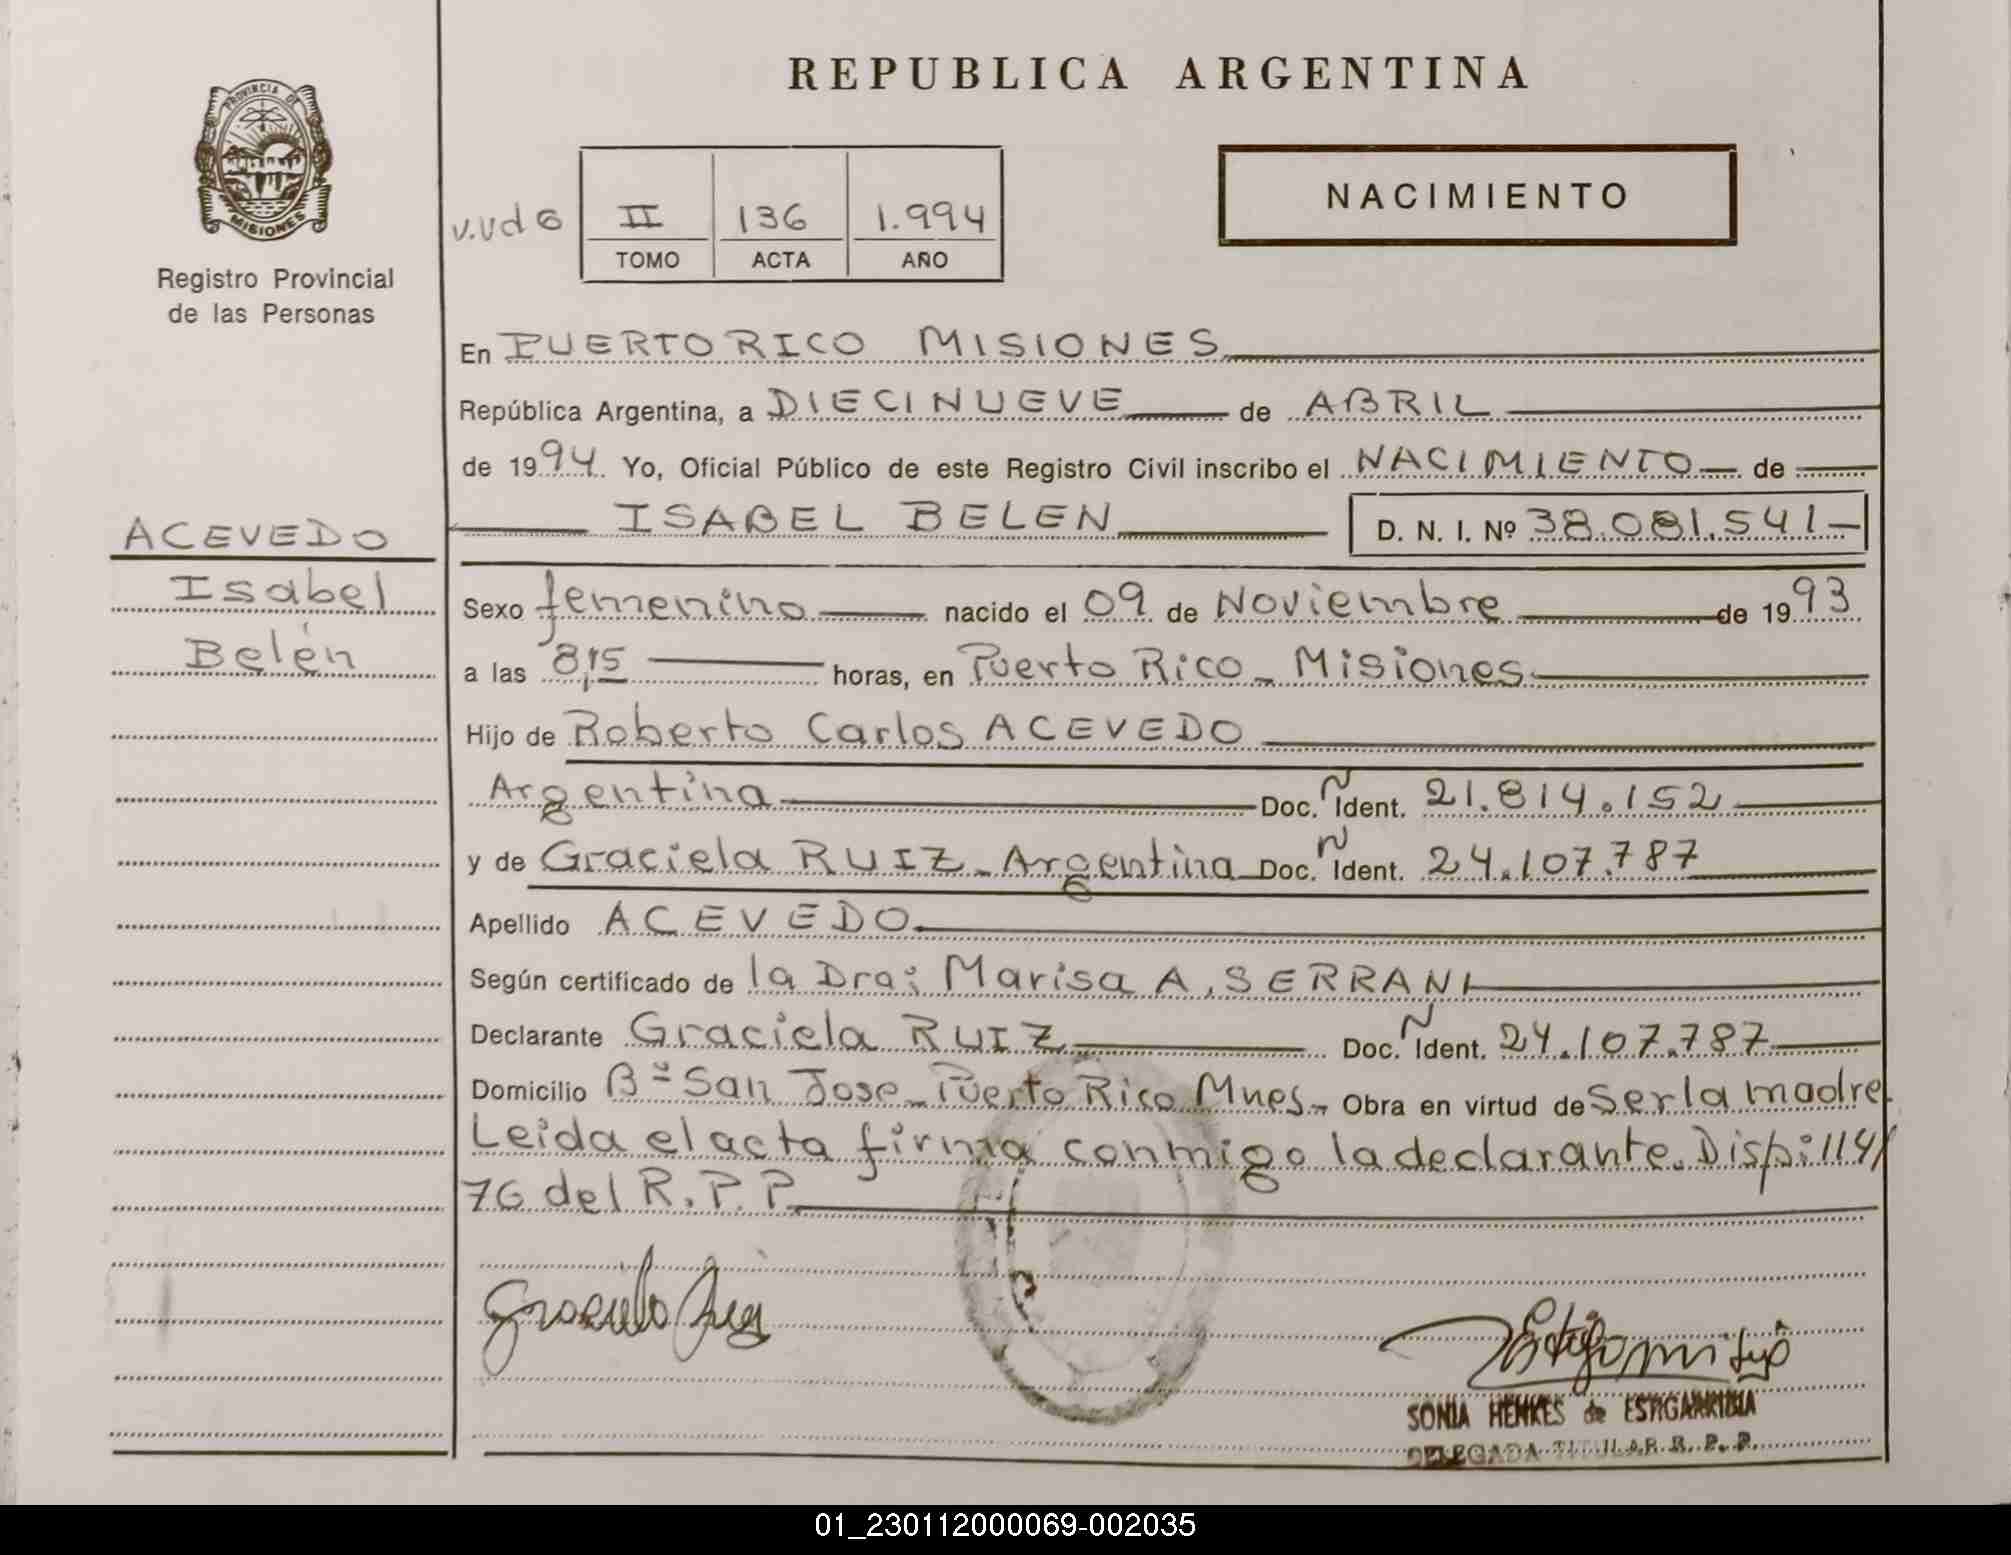 REPUBLICA ARGENTINA
PROVINCIA DE
MISIONES
Registro Provincial
de las Personas
NACIMIENTO
II 136 1.994
TOMO ACTA AÑO
En PUERTO RICO MISIONES
República Argentina, a DIECINUEVE de ABRIL
de 1994 Yo, Oficial Público de este Registro Civil inscribo el NACIMIENTO de
ISABEL BELEN D. N. I. Nº 38.081.541
ACEVEDO
Isabel
Belén
Sexo femenino nacido el 09 de Noviembre de 1993
a las 8,15 horas, en Puerto Rico - Misiones
Hijo de Roberto Carlos ACEVEDO
Argentina Doc. N Ident. 21.814.152
y de Graciela RUIZ - Argentina Doc. N Ident. 24.107.787
Apellido ACEVEDO
Según certificado de la Dra: Marisa A. SERRANI
Declarante Graciela RUIZ Doc. N Ident. 24.107.787
Domicilio Bº San Jose - Puerto Rico Mnes - Obra en virtud de Ser la madre
Leida el acta firma conmigo la declarante. Disp: 114/
76 del R.P.P.
Graciela Ruiz
SONIA HENKES de ESTIGARRIBIA
DELEGADA TITULAR R. P. P.
01_230112000069-002035